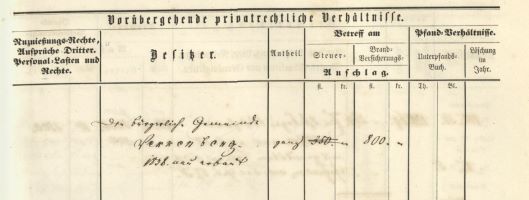 Vorübergehende privatrechtliche Verhältnisse.
Nuznießungs-Rechte, Ansprüche Dritter. Personal-Lasten und Rechte.
Besitzer.
Antheil.
Betreff am
Steuer-
Brand-Versicherungs-
Anschlag.
Pfand-Verhältnisse.
Unterpfands-Buch.
Löschung im Jahr.
fl. kr. fl. kr. Th. Bl.
Die bürgerliche Gemeinde
Verrenberg. ganz 350. " 800. "
1838. neu erbaut